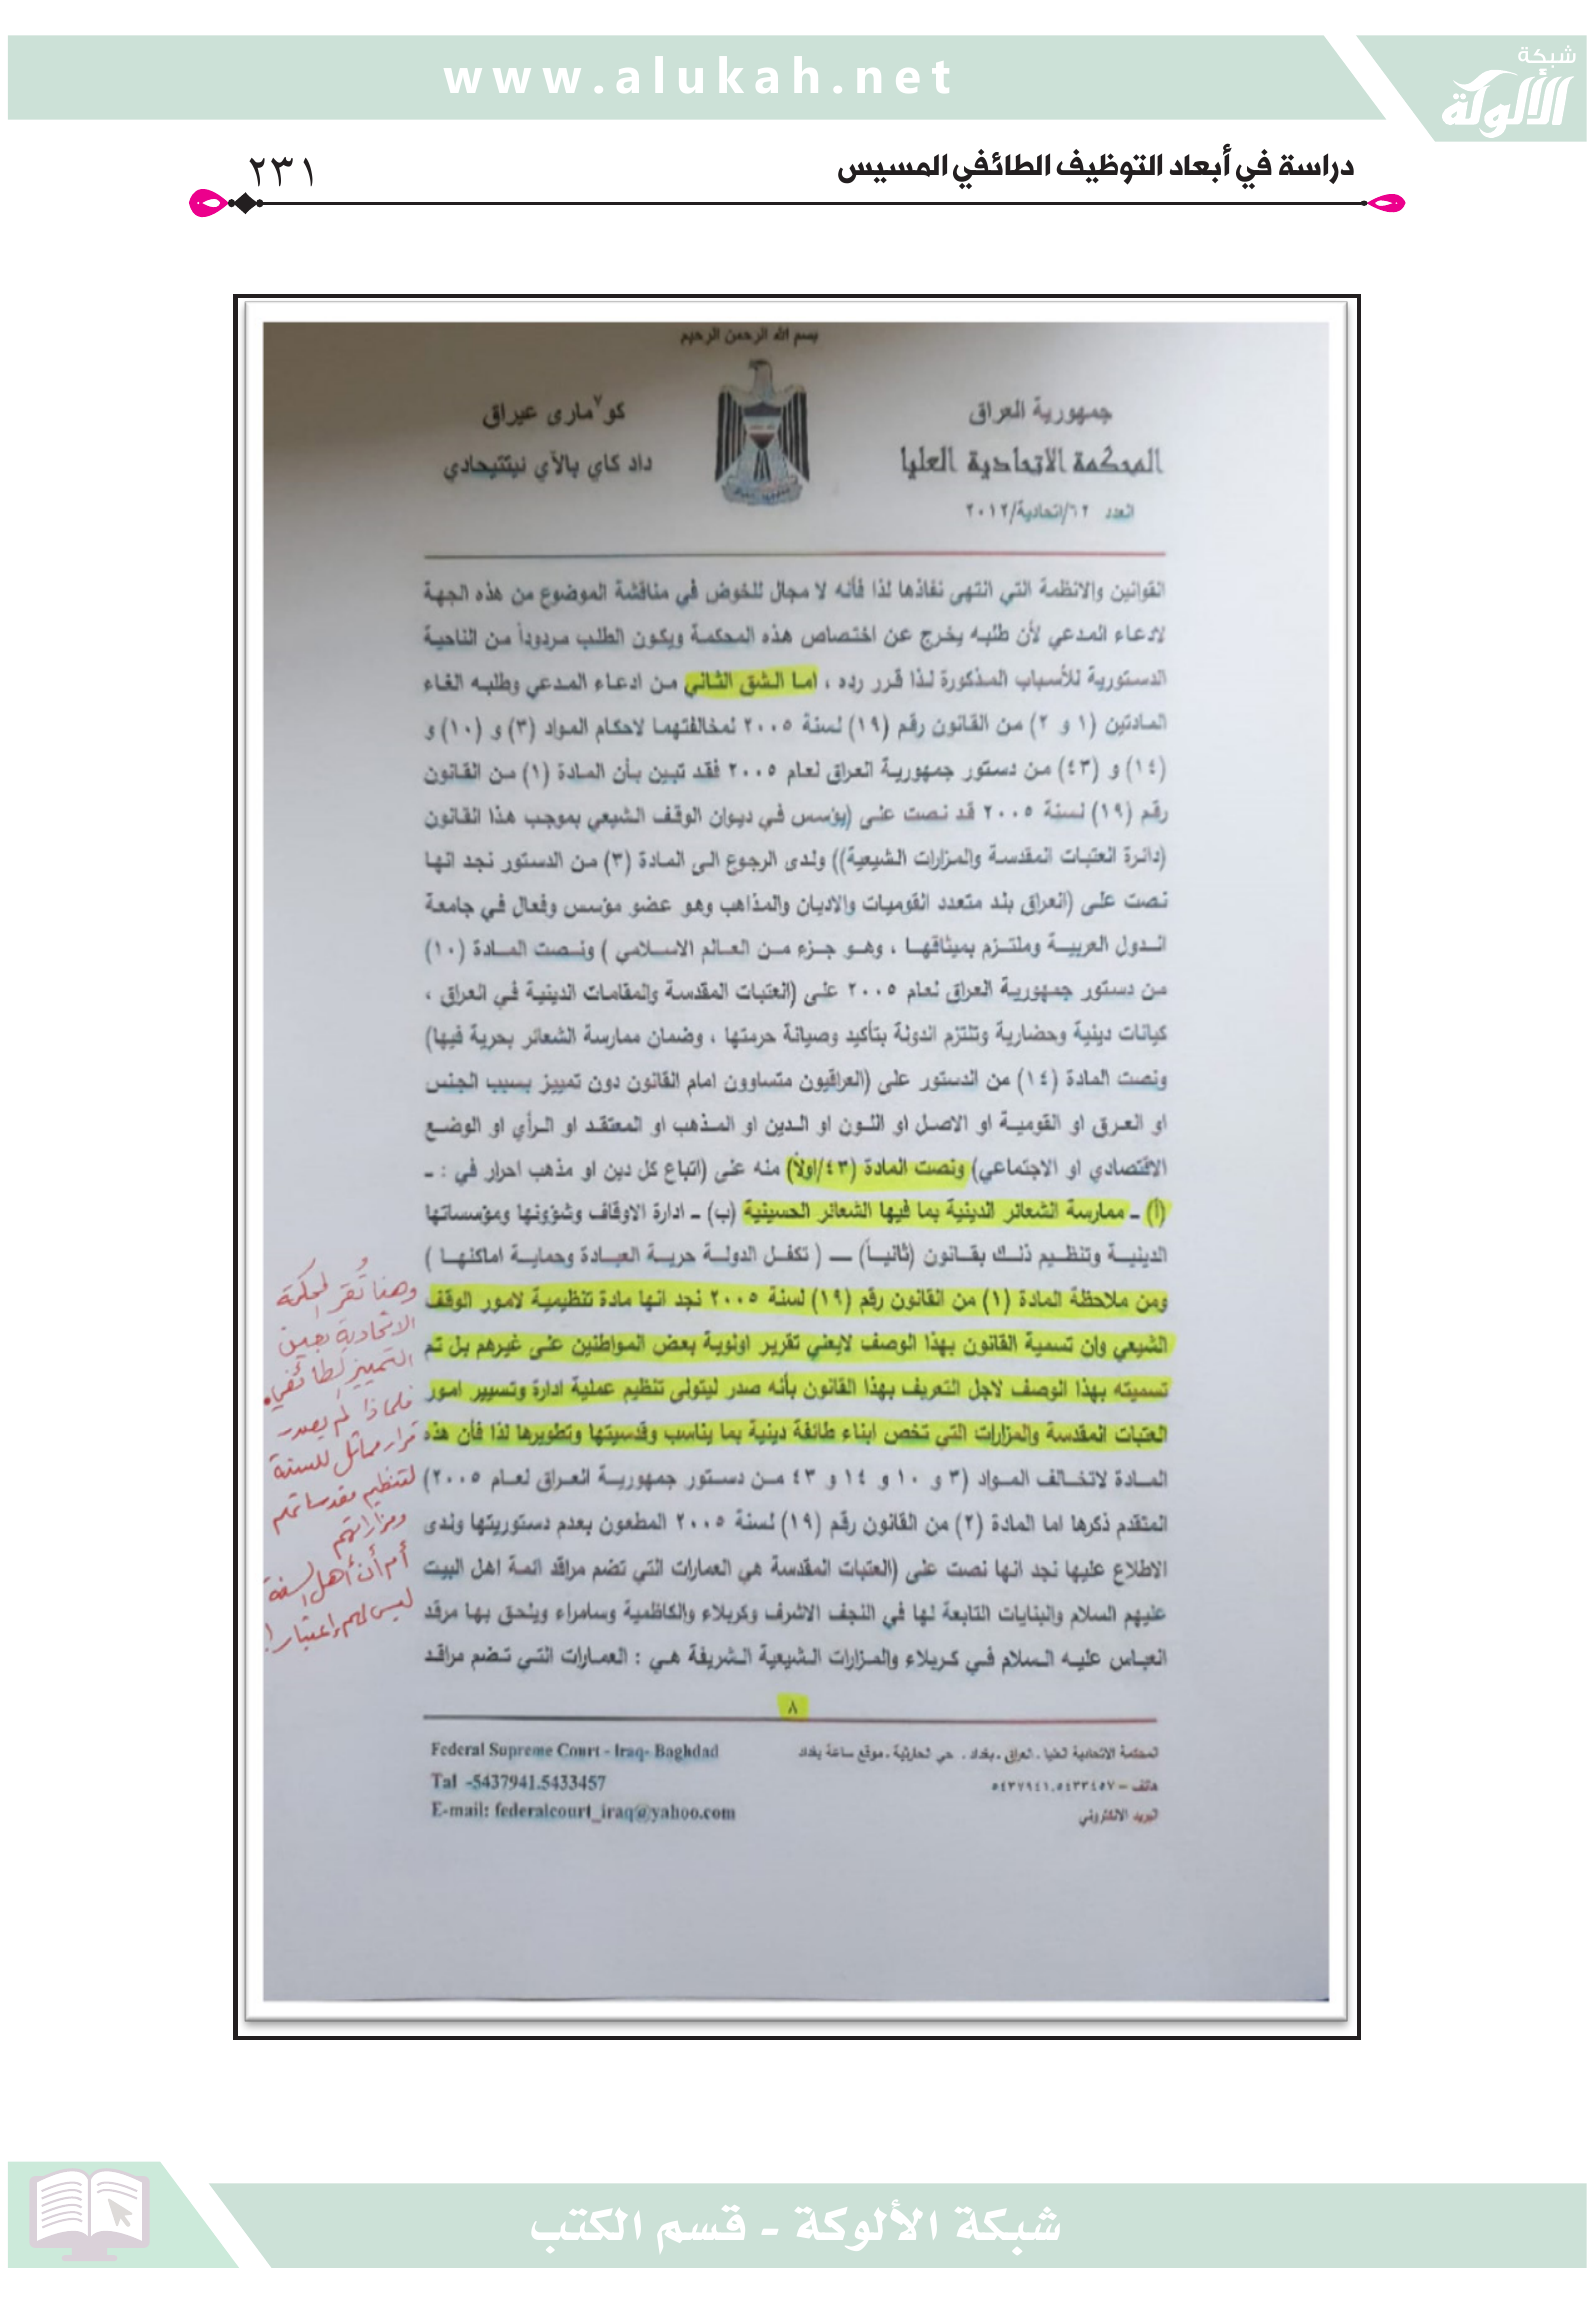 www.alukah.net
شبكة
الألوكة
دراسة في أبعاد التوظيف الطائفي المسيس
٢٣١
بسم الله الرحمن الرحيم
جمهورية العراق
كو٧مارى عيراق
المحكمة الاتحادية العليا
داد كاي بالآي ئيتتيحادي
العدد ٦٢/اتحادية/٢٠١٢
القوانين والانظمة التي انتهى نفاذها لذا فأنه لا مجال للخوض في مناقشة الموضوع من هذه الجهة
لادعاء المدعي لأن طلبه يخرج عن اختصاص هذه المحكمة ويكون الطلب مردوداً من الناحية
الدستورية للأسباب المذكورة لذا قرر رده ، اما الشق الثاني من ادعاء المدعي وطلبه الغاء
المادتين (١ و ٢) من القانون رقم (١٩) لسنة ٢٠٠٥ لمخالفتهما لاحكام المواد (٣) و (١٠) و
(١٤) و (٤٣) من دستور جمهورية العراق لعام ٢٠٠٥ فقد تبين بأن المادة (١) من القانون
رقم (١٩) لسنة ٢٠٠٥ قد نصت على (يؤسس في ديوان الوقف الشيعي بموجب هذا القانون
(دائرة العتبات المقدسة والمزارات الشيعية)) ولدى الرجوع الى المادة (٣) من الدستور نجد انها
نصت على (العراق بلد متعدد القوميات والاديان والمذاهب وهو عضو مؤسس وفعال في جامعة
الدول العربية وملتزم بميثاقها ، وهو جزء من العالم الاسلامي ) ونصت المادة (١٠)
من دستور جمهورية العراق لعام ٢٠٠٥ على (العتبات المقدسة والمقامات الدينية في العراق ،
كيانات دينية وحضارية وتلتزم الدولة بتأكيد وصيانة حرمتها ، وضمان ممارسة الشعائر بحرية فيها)
ونصت المادة (١٤) من الدستور على (العراقيون متساوون امام القانون دون تمييز بسبب الجنس
او العرق او القومية او الاصل او اللون او الدين او المذهب او المعتقد او الرأي او الوضع
الاقتصادي او الاجتماعي) ونصت المادة (٤٣/اولاً) منه على (اتباع كل دين او مذهب احرار في : ـ
(أ) ـ ممارسة الشعائر الدينية بما فيها الشعائر الحسينية (ب) ـ ادارة الاوقاف وشؤونها ومؤسساتها
الدينية وتنظيم ذلك بقانون (ثانياً) ـ ( تكفل الدولة حرية العبادة وحماية اماكنها )
ومن ملاحظة المادة (١) من القانون رقم (١٩) لسنة ٢٠٠٥ نجد انها مادة تنظيمية لامور الوقف
الشيعي وان تسمية القانون بهذا الوصف لايعني تقرير اولوية بعض المواطنين على غيرهم بل تم
تسميته بهذا الوصف لاجل التعريف بهذا القانون بأنه صدر ليتولى تنظيم عملية ادارة وتسيير امور
العتبات المقدسة والمزارات التي تخص ابناء طائفة دينية بما يناسب وقدسيتها وتطويرها لذا فأن هذه
المادة لاتخالف المواد (٣ و ١٠ و ١٤ و ٤٣ من دستور جمهورية العراق لعام ٢٠٠٥)
المتقدم ذكرها اما المادة (٢) من القانون رقم (١٩) لسنة ٢٠٠٥ المطعون بعدم دستوريتها ولدى
الاطلاع عليها نجد انها نصت على (العتبات المقدسة هي العمارات التي تضم مراقد ائمة اهل البيت
عليهم السلام والبنايات التابعة لها في النجف الاشرف وكربلاء والكاظمية وسامراء ويلحق بها مرقد
العباس عليه السلام في كربلاء والمزارات الشيعية الشريفة هي : العمارات التي تضم مراقد
وهنا تُقر المحكمة
الاتحادية بعين
التمييز الطائفي.
فلماذا لم يصدر
قرار مماثل للسنة
لتنظيم مقدساتهم
ومزاراتهم
أم أن أهل السنة
ليس لهم إعتبار!
٨
المحكمة الاتحادية العليا ـ العراق ـ بغداد ـ حي الحارثية ـ موقع ساعة بغداد
Federal Supreme Court - Iraq- Baghdad
هاتف – ٥٤٣٧٩٤١,٥٤٣٣٤٥٧
Tal -5437941.5433457
البريد الالكتروني
E-mail: federalcourt_iraq@yahoo.com
شبكة الألوكة - قسم الكتب